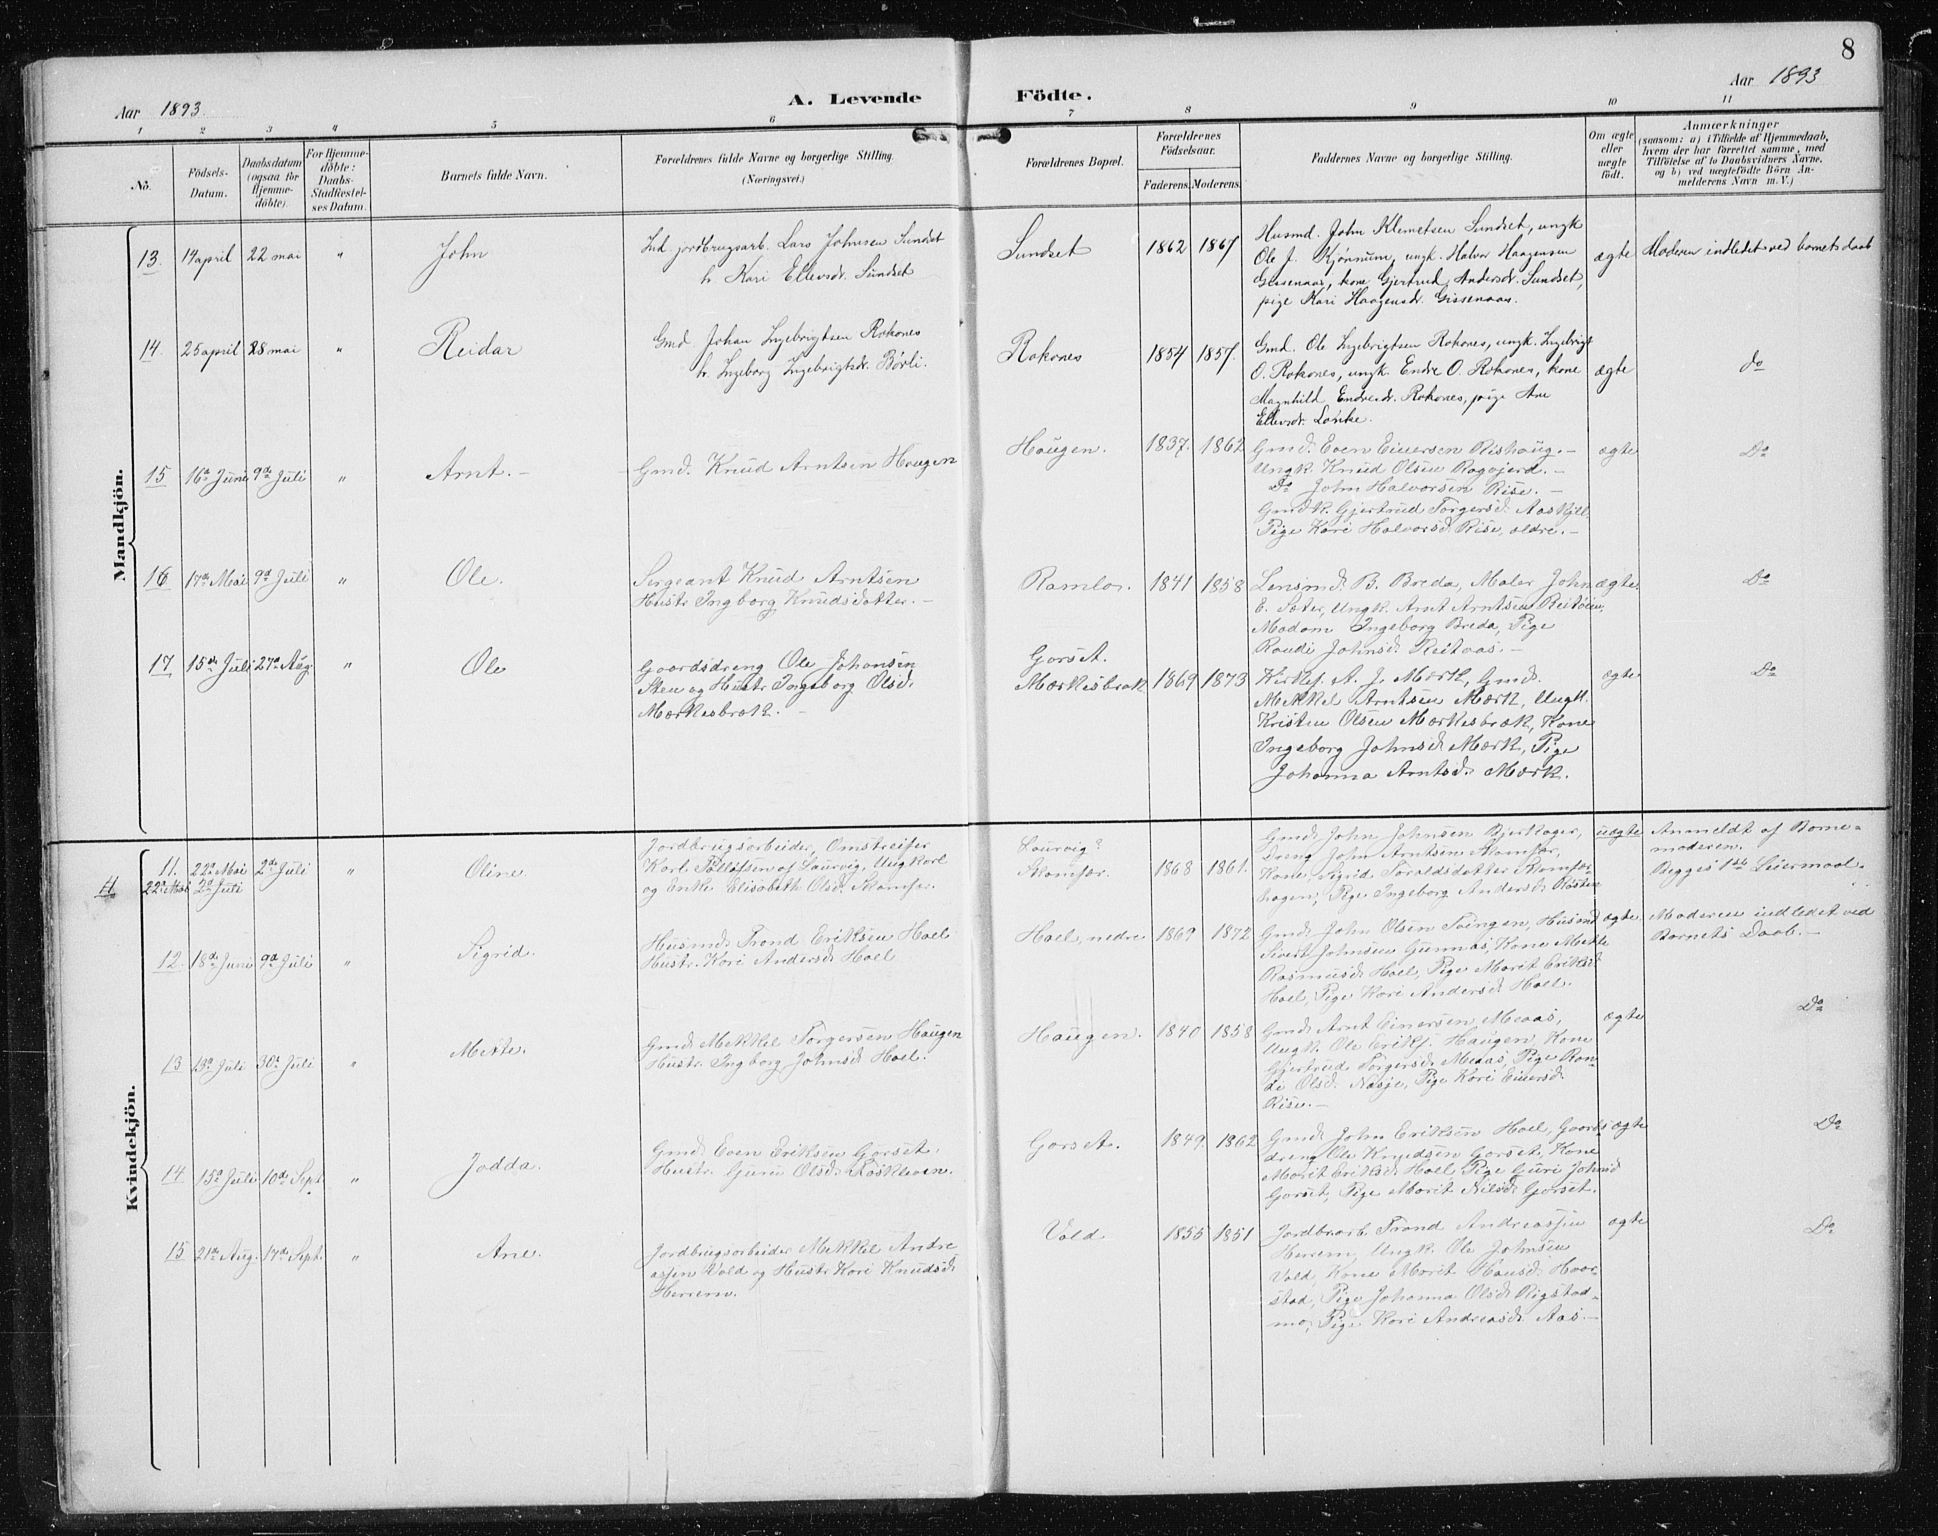 8
Aar 1893.
A. Levende
Födte.
Aar 1893
1 2 3 4 5 6 7 8 9 10 11
No.
Födsels-
Datum.
Daabsdatum
(ogsaa for
Hjemme-
döbte).
For Hjemme-
döbte:
Daabs-
Stadfæstel-
ses Datum.
Barnets fulde Navn.
Forældrenes fulde Navne og borgerlige Stilling.
(Næringsvei.)
Forældrenes Bopæl.
Forældrenes
Födselsaar.
Faderens. Moderens.
Faddernes Navne og borgerlige Stilling.
Om ægte
eller
uægte
födt.
Anmærkninger
(saasom: a) i Tilfælde af Hjemmedaab,
hvem der har forrettet samme, med
Tilföielse af to Daabsvidners Navne,
og b) ved uægtefödte Börn An-
melderens Navn m. V.)
Mandkjön.
13. 14 april 22 mai "
John
Ind. jordbrugsarb. Lars Johnsen Sundset
h. Kari Ellevsdr. Sundset
Sundset
1862 1867
Husmd. John Klemetsen Sundset, ungk
Ole J. Kjönnum, ungk. Halvor Haagensen
Gissenaas, kone Gjertrud Andersdr. Sundset,
pige Kari Haagensdr. Gissenaas.
ægte
Moderen indledet ved barnets daab
14. 25 april 28 mai "
Reidar
Gmd. Johan Ingebrigtsen Rokones
h. Ingeborg Ingebrigtsdr. Børli.
Rokones
1854 1857.
Gmd. Ole Ingebrigtsen Rokones, ungk. Ingebrigt
O. Rokones, ungk. Endre O. Rokones, kone
Magnhild Endresdr. Rokones, pige Ane
Ellevsdr. Lønke.
ægte
do
15 16de Juni 9de Juli "
Arnt. -
Gmd. Knud Arntsen Haugen
Haugen.
1837. 1862
Gmd. Even Einersen Rishaug. -
Ungk. Knud Olsen Rogogjerd. -
Do John Halvorsen Rise. -
Gmdk. Gjertrud Torgersd. Aaskjll.
Pige Kari Halvorsd. Rise, ældre. -
ægte
Do
16 17de Mai 9de Juli "
Ole.
Sergeant Knud Arntsen
Hustr Ingborg Knudsdatter. -
Ramlo.
1841 1858
Lensmd. B. Breda, Maler John
E. Sæter, Ungk. Arnt Arntsen Reitøien,
Madam Ingeborg Breda, Pige
Randi Johnsd. Reitaas. -
ægte.
Do
17 15de Juli 27de Aug. "
Ole
Gaardsdreng Ole Johansen
Sten og Hustr Ingeborg Olsd.
Mærkesbræk. -
Gorset.
Mærkesbræk
1869 1873
Kirkes. A. J. Mærk, Gmd.
Mekkel Arntsen Mærk, Ungk.
Kristen Olsen Mærkesbræk, Kone
Ingeborg Johnsd. Mærk, Pige
Johanna Arntsd. Mærk.
ægte
Do
Kvindekjön.
11. 22de Mai 2de Juli "
11 22de Mai 2de Juli
Oline.
Jordbrugsarbeider, Omstreifer
Karl Tollefsen af Laurvig, Ungkarl
og Enke Elisabeth Olsd. Skomfar.
Laurvig?
Skomfar.
1868 1861.
Gmd. John Johnsen Bjerkager,
Dreng John Arntsen Skomfar,
Kone Sigrid Toroldsdatter Skomfar-
hagen, Pige Ingeborg Andersd. Røsten
uægte
Anmeldt af Barne-
moderen.
Begges 1ste Leiermaal.
12. 18de Juni 9de Juli "
Sigrid.
Husmd. Trond Eriksen Hoel
Hustr. Kari Andersd. Hoel
Hoel, nedre
1869 1872
Gmd. John Olsen Svingen, Husmd.
Sivert Johnsen Gunnas, Kone Mette
Rasmusd. Hoel, Pige Marit Eriksd.
Hoel, Pige Kari Andersd. Hoel.
ægte
Moderen indledet ved
Barnets Daab. -
13 13de Juli 30de Juli "
Mette.
Gmd. Mekkel Torgersen Haugen
Hustr. Ingborg Johnsd. Hoel.
Haugen.
1840 1858
Gmd. Arnt Einersen Meaas,
Ungk. Ole Eriks. Haugen, Kone
Gjertrud Torgersd. Meaas, Pige Ran-
di Olsd. Næsje, Pige Kari Einersd.
Rise. -
ægte
Do
14 15de Juli 10de Sept. "
Jodda.
Gmd. Even Eriksen Gorset.
Hustr. Guru Olsd. Raskleven.
Gorset.
1849. 1862
Gmd. John Eriksen Hoel, Gaards-
dreng Ole Knudsen Gorset, Kone
Marit Eriksd. Hoel, Pige Guri Johnsd.
Gorset, Pige Marit Nilsd. Gorset.
ægte
Do
15 21de Aug. 17de Sept. "
Ane.
Jordbrugsarbeider Mekkel Andre
assen Vold og Hustr. Kari Knudsd.
Herrem.
Vold
1855 1851
Jordbrarb. Trond Andreassen
Herrem, Ungk. Ole Johnsen
Vold, Kone Marit Hansd. Hvor-
stad, Pige Johanna Olsd. Rigstad-
mo, Pige Kari Andreasd. Aas. -
ægte
Do